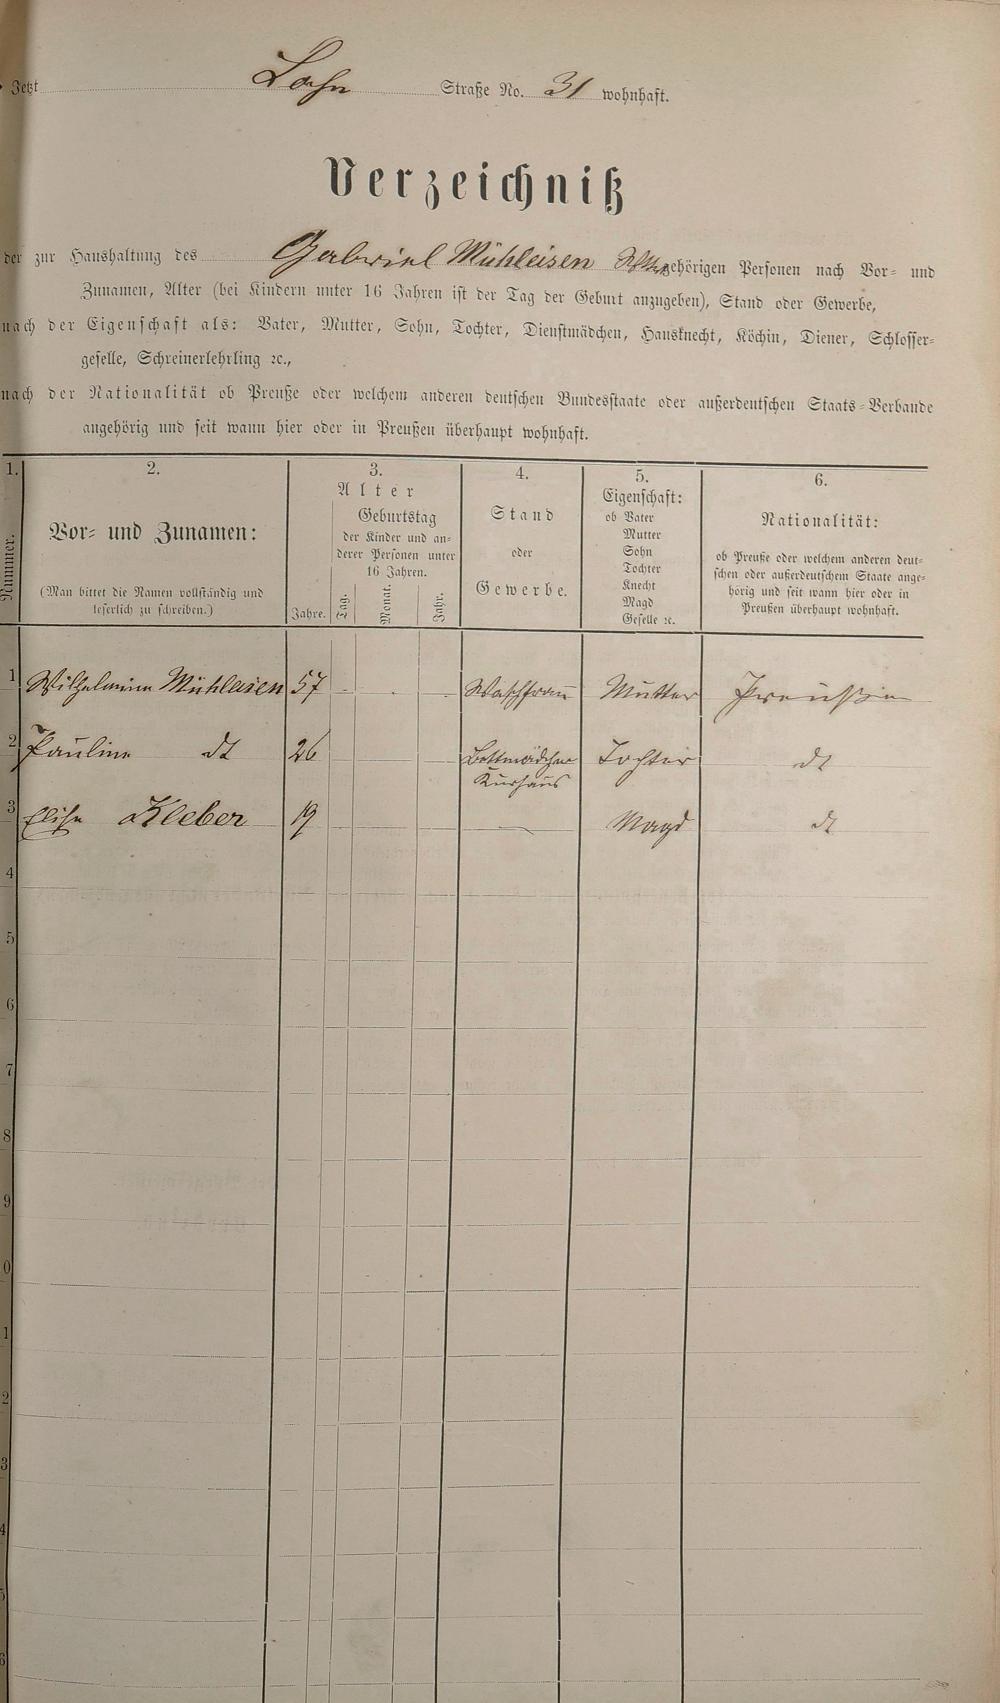 Jetzt Lahn Straße No. 31 wohnhaft.
Verzeichniß
der zur Haushaltung des Gabriel Mühleisen gehörigen Personen nach Vor- und
Zunamen, Alter (bei Kindern unter 16 Jahren ist der Tag der Geburt anzugeben), Stand oder Gewerbe,
nach der Eigenschaft als: Vater, Mutter, Sohn, Tochter, Dienstmädchen, Hausknecht, Köchin, Diener, Schlosser-
geselle, Schreinerlehrling ꝛc.,
nach der Nationalität ob Preuße oder welchem anderen deutschen Bundesstaate oder außerdeutschen Staats-Verbande
angehörig und seit wann hier oder in Preußen überhaupt wohnhaft.
1.
Nummer.
2.
Vor- und Zunamen:
(Man bittet die Namen vollständig und
leserlich zu schreiben.)
3.
Alter
Jahre.
Geburtstag
der Kinder und an-
derer Personen unter
16 Jahren.
Tag. Monat. Jahr.
4.
Stand
oder
Gewerbe.
5.
Eigenschaft:
ob Vater
Mutter
Sohn
Tochter
Knecht
Magd
Geselle ꝛc.
6.
Nationalität:
ob Preuße oder welchem anderen deut-
schen oder außerdeutschem Staate ange-
hörig und seit wann hier oder in
Preußen überhaupt wohnhaft.
1 Wilhelmine Mühleisen 57 Waschfrau Mutter Preußin
2 Pauline dt 26 Bettmädchen Kurhaus Tochter dt
3 Elise Kleber 19 — Magd dt
4
5
6
7
8
9
0
1
2
3
4
5
6